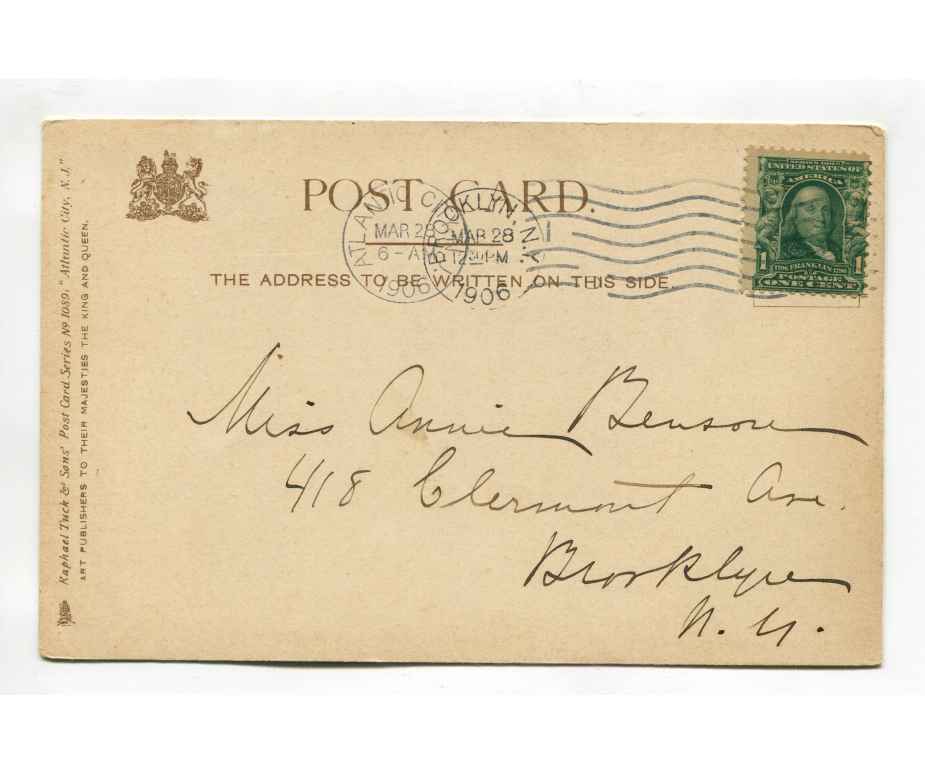 POST CARD.
THE ADDRESS TO BE WRITTEN ON THIS SIDE.
ATLANTIC CITY
MAR 28
6-A
1906
BROOKLYN, N.Y.
MAR 28
12 30 PM
1906
SERIES 1902
UNITED STATES OF
AMERICA
1 1706 FRANKLIN 1790 1
POSTAGE
ONE CENT
Miss Annie Benson
418 Clermont Ave.
Brooklyn
N. Y.
Raphael Tuck & Sons' Post Card Series Nº 1089, "Atlantic City, N. J."
ART PUBLISHERS TO THEIR MAJESTIES THE KING AND QUEEN.